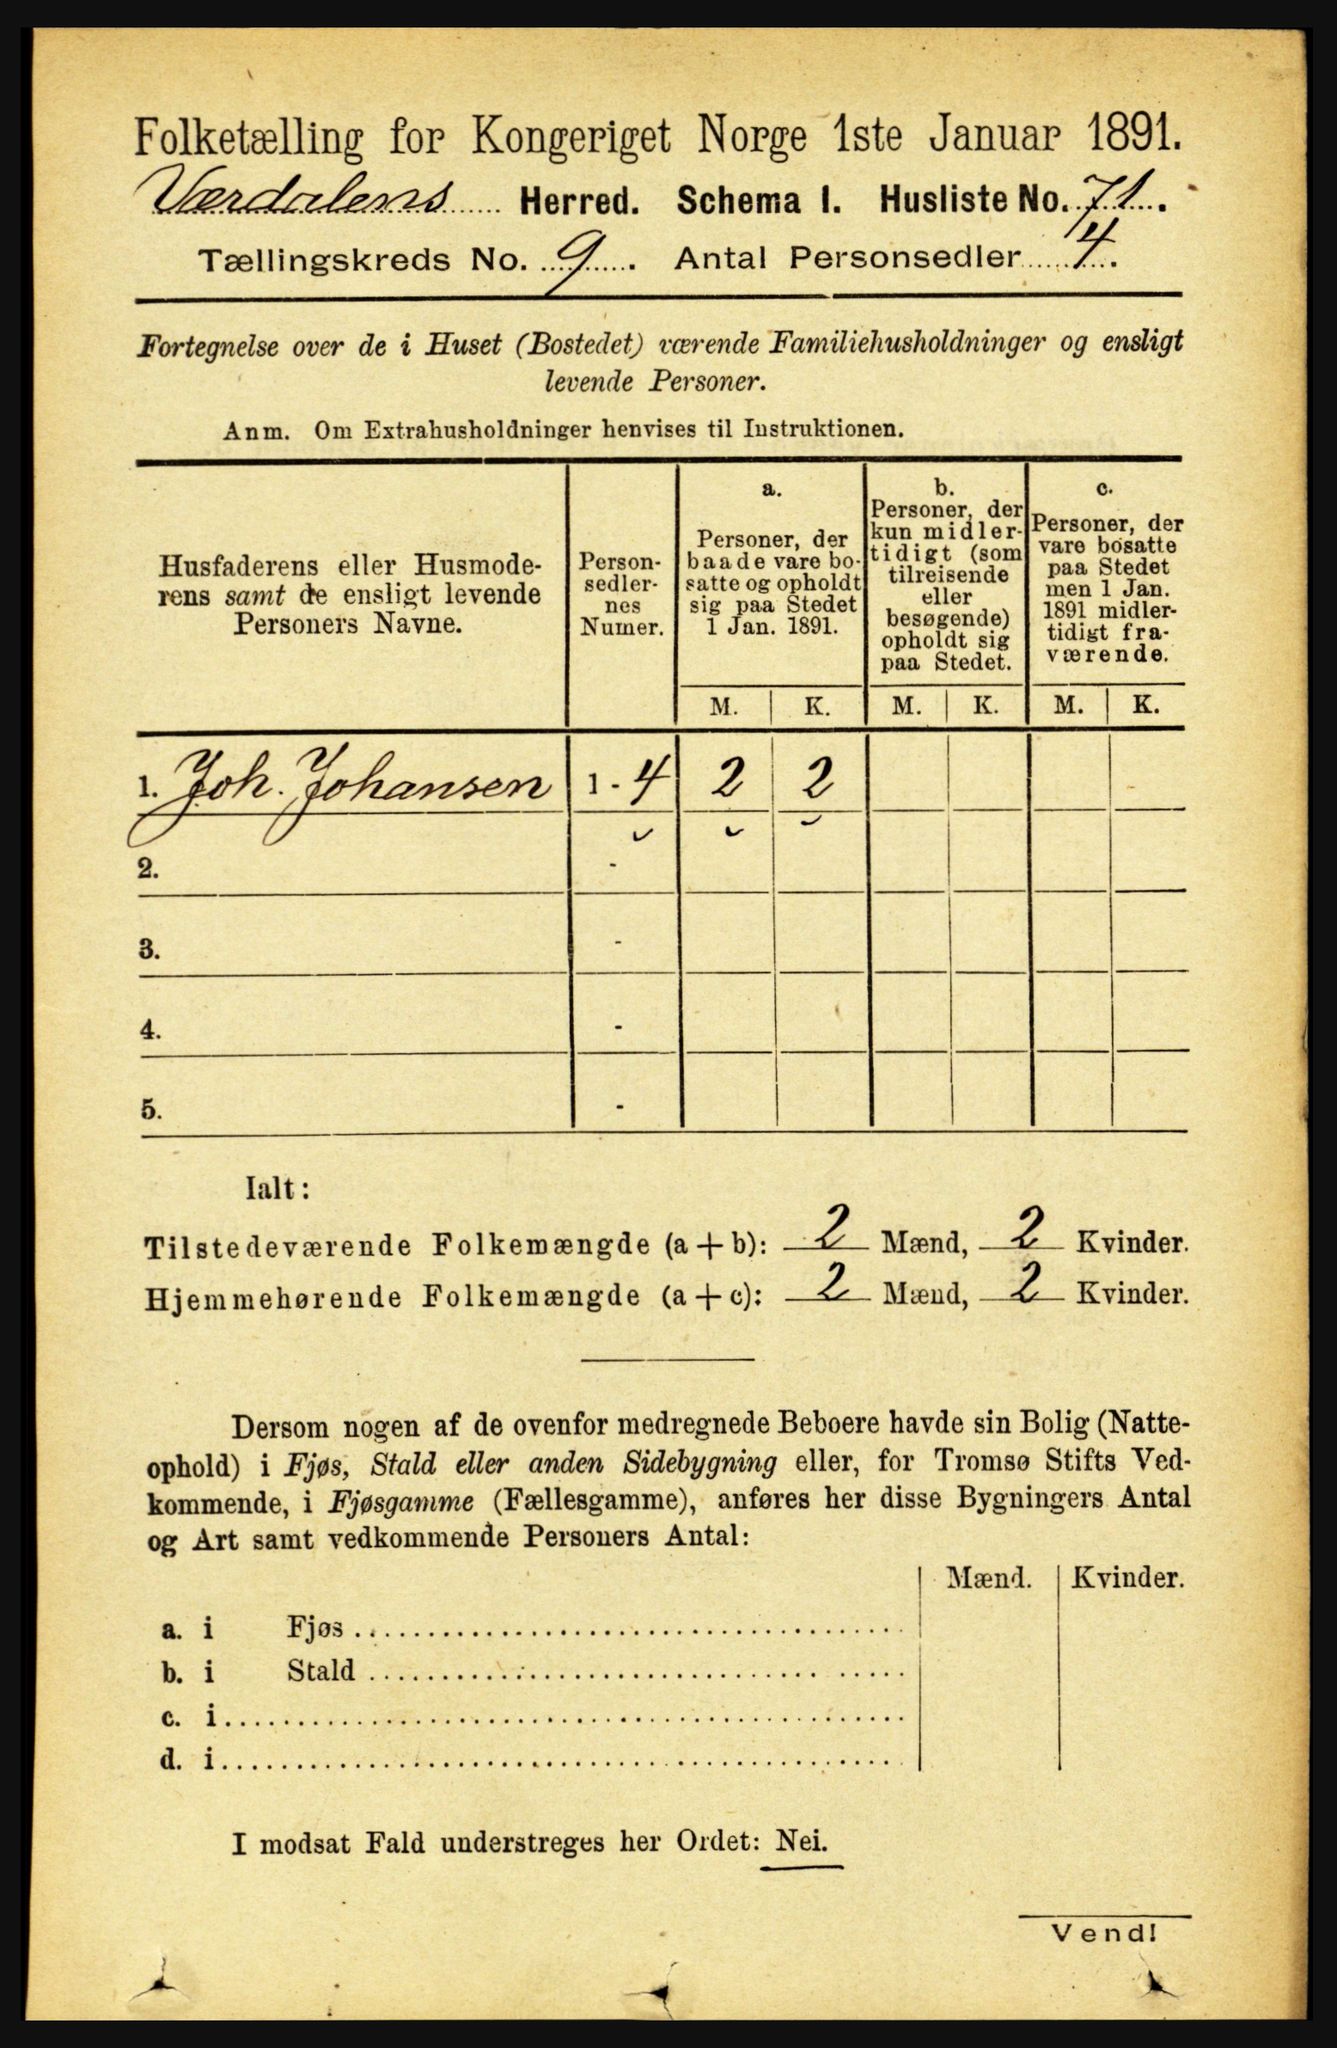 Folketælling for Kongeriget Norge 1ste Januar 1891.
Værdalens Herred. Schema I. Husliste No. 71.
Tællingskreds No. 9. Antal Personsedler 4.
Fortegnelse over de i Huset (Bostedet) værende Familiehusholdninger og ensligt
levende Personer.
Anm. Om Extrahusholdninger henvises til Instruktionen.
Husfaderens eller Husmode-
rens samt de ensligt levende
Personers Navne.
Person-
sedler-
nes
Numer.
a.
Personer, der
baade vare bo-
satte og opholdt
sig paa Stedet
1 Jan. 1891.
b.
Personer, der
kun midler-
tidigt (som
tilreisende
eller
besøgende)
opholdt sig
paa Stedet.
c.
Personer, der
vare bosatte
paa Stedet
men 1 Jan.
1891 midler-
tidigt fra-
værende.
M. K. M. K. M. K.
1. Joh. Johansen 1 - 4 2 2
2. -
3. -
4. -
5. -
Ialt:
Tilstedeværende Folkemængde (a + b): 2 Mænd, 2 Kvinder.
Hjemmehørende Folkemængde (a + c): 2 Mænd, 2 Kvinder.
Dersom nogen af de ovenfor medregnede Beboere havde sin Bolig (Natte-
ophold) i Fjøs, Stald eller anden Sidebygning eller, for Tromsø Stifts Ved-
kommende, i Fjøsgamme (Fællesgamme), anføres her disse Bygningers Antal
og Art samt vedkommende Personers Antal:
Mænd. Kvinder.
a. i Fjøs
b. i Stald
c. i
d. i
I modsat Fald understreges her Ordet: Nei.
Vend!